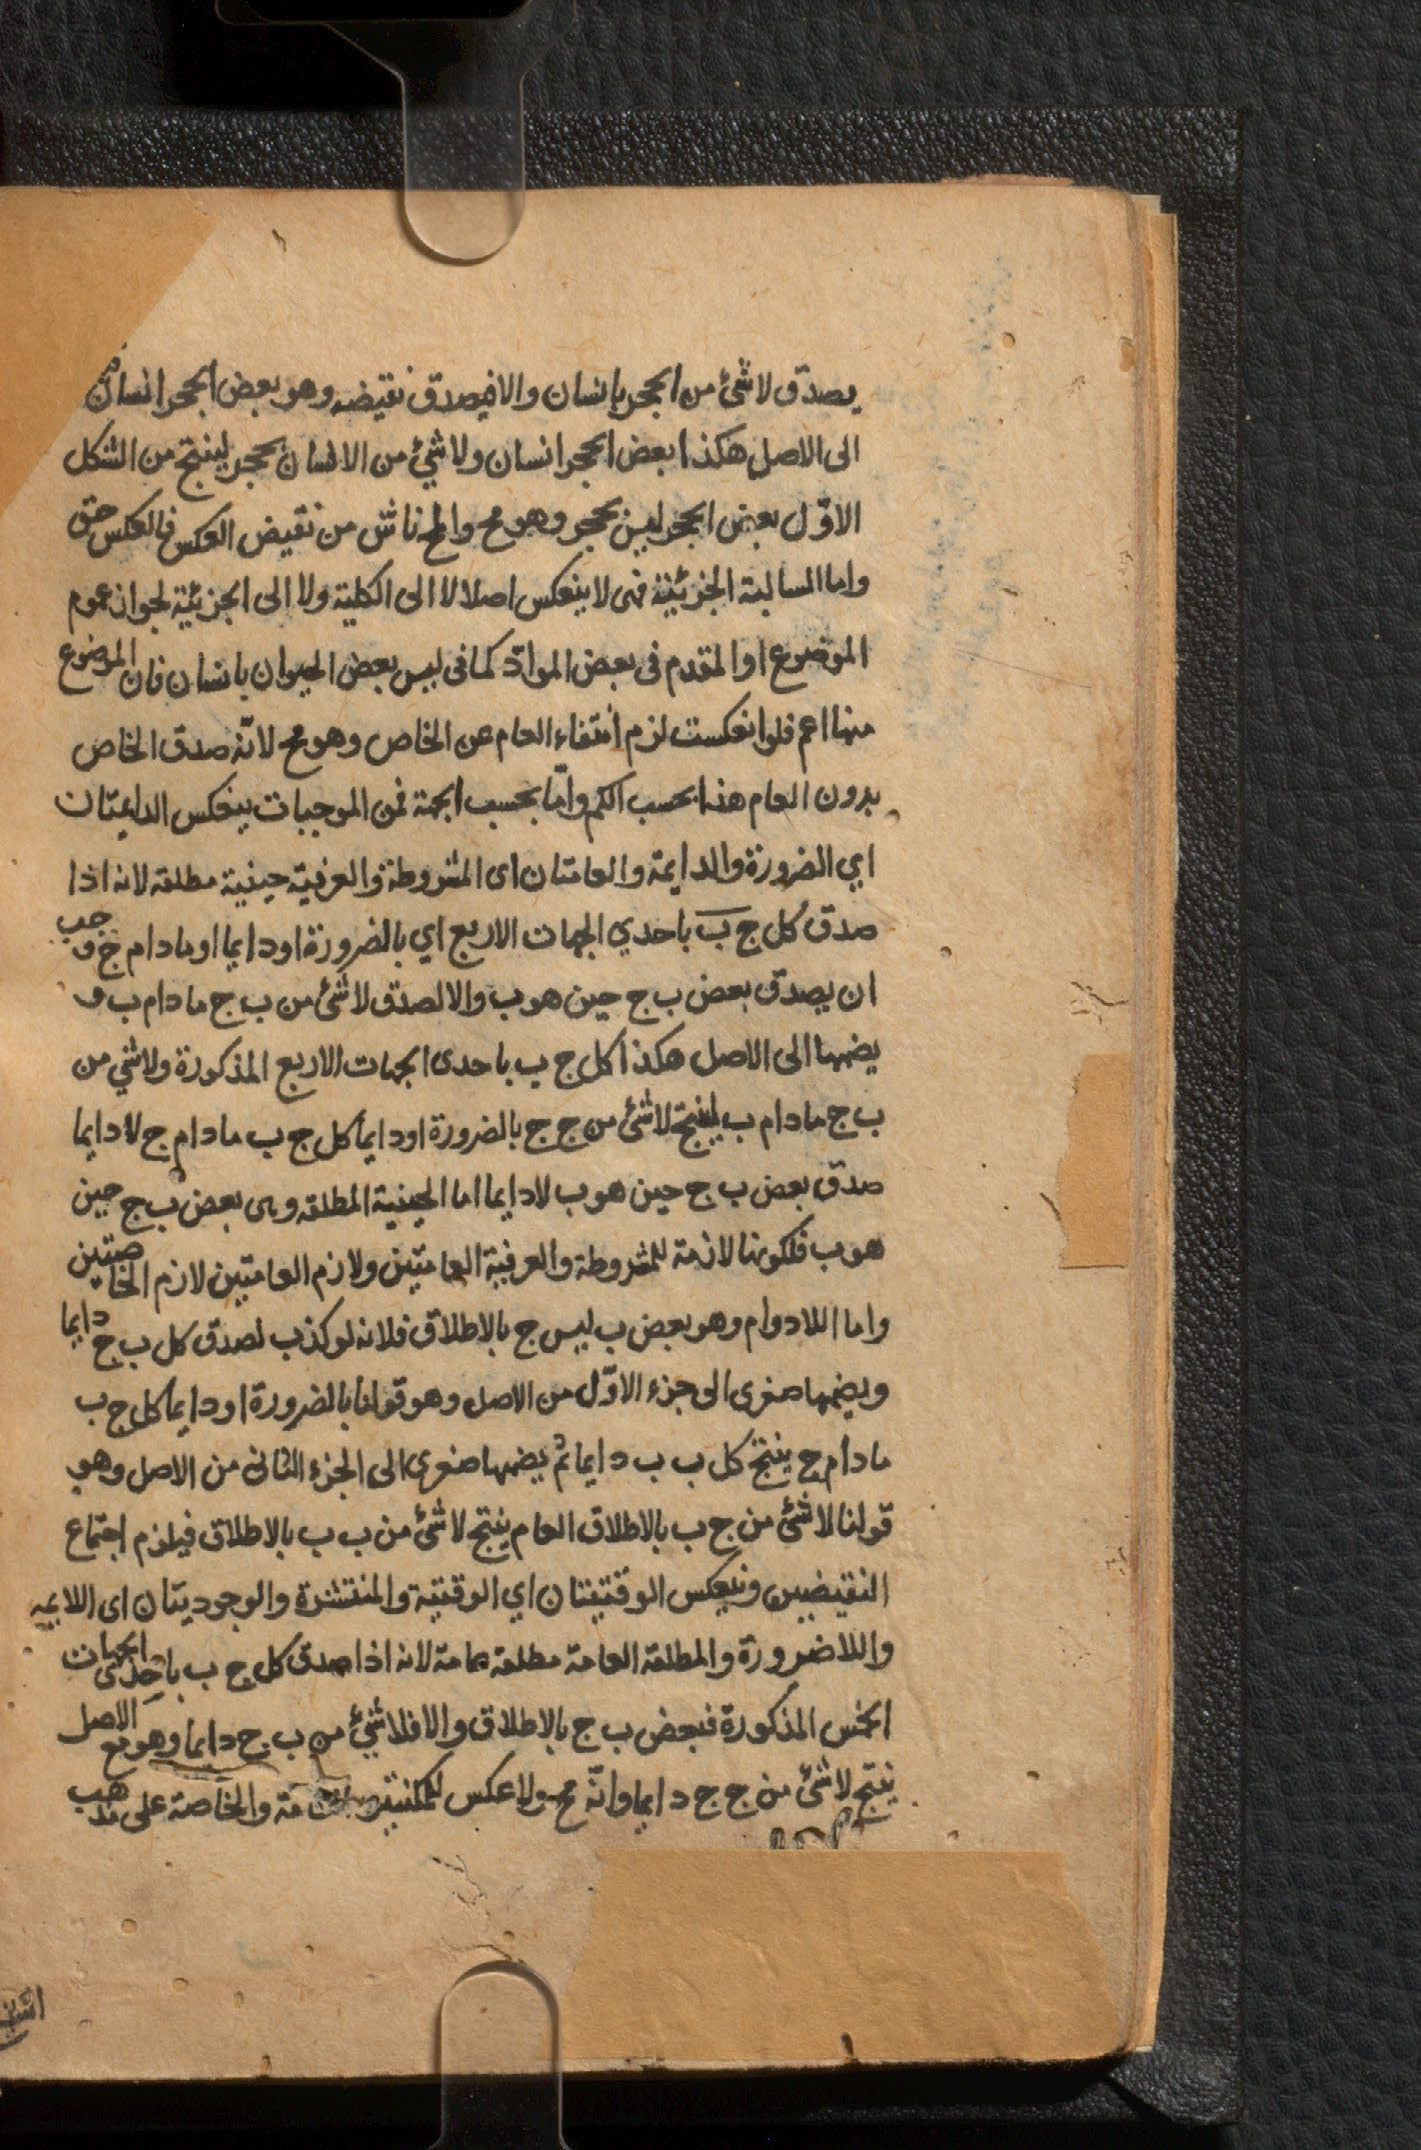 يصدق لا شئ من الحجر بانسان والا فيصدق نقيضه وهو بعض الحجر انسان
الى الاصل هكذا بعض الحجر انسان ولا شئ من الانسان بحجر لينتج من الشكل
الاوّل بعض الحجر ليس بحجر وهو مح والمح ناش من نقيض العكس فالعكس حق
واما السالبة الجزئية فهى لا ينعكس اصلا لا الى الكلية ولا الى الجزئية لجواز عموم
الموضوع او المقدم فى بعض الموادّ كما فى ليس بعض الحيوان بانسان فان الموضوع
منها اعم فلو انعكست لزم انتفاء العام عن الخاص وهو مح لانّه صدق الخاص
بدون العام هذا بحسب الكم وامّا بحسب الجهة فمن الموجبات ينعكس الدايمتان
اي الضرورة والدايمة والعامتان اى المشروطة والعرفية حينية مطلقه لانه اذا
صدق كل ج ب باحدي الجهات الاربع اي بالضرورة او دايما او مادام ج وجب
ان يصدق بعض ب ج حين هو ب والا لصدق لا شئ من ب ج مادام ب و
يضمها الى الاصل هكذا كل ج ب باحدى الجهات الاربع المذكورة ولا شئ من
ب ج مادام ب لينتج لا شئ من ج ج بالضرورة او دايما كل ج ب مادام ج لا دايما
صدق بعض ب ج حين هو ب لا دايما اما الحينية المطلقه وهى بعض ب ج حين
هو ب فلكونها لازمة للمشروطة والعرفية العامتين ولازم العامتين لازم الخاصتين
واما اللادوام وهو بعض ب ليس ج بالاطلاق فلانه لو كذب لصدق كل ب ج دايما
ويضمها صغرى الى جزء الاوّل من الاصل وهو قولنا بالضرورة او دايما كل ج ب
مادام ج ينتج كل ب ب دايما ثم يضمها صغرى الى الجزء الثانى من الاصل وهو
قولنا لا شئ من ج ب بالاطلاق العام ينتج لا شئ من ب ب بالاطلاق فيلزم اجتماع
النقيضين وينعكس الوقتيتان اي الوقتية والمنتشرة والوجوديتان اى اللادايمه
واللاضرورة والمطلقه العامة مطلقه عامة لانه اذا صدق كل ج ب باحدى الجهات
الخمس المذكورة فبعض ب ج بالاطلاق والا فلا شئ من ب ج دايما وهو مع الاصل
ينتج لا شئ من ج ج دايما وانّه مح ولا عكس للمكنتين والخاصة على مذهب